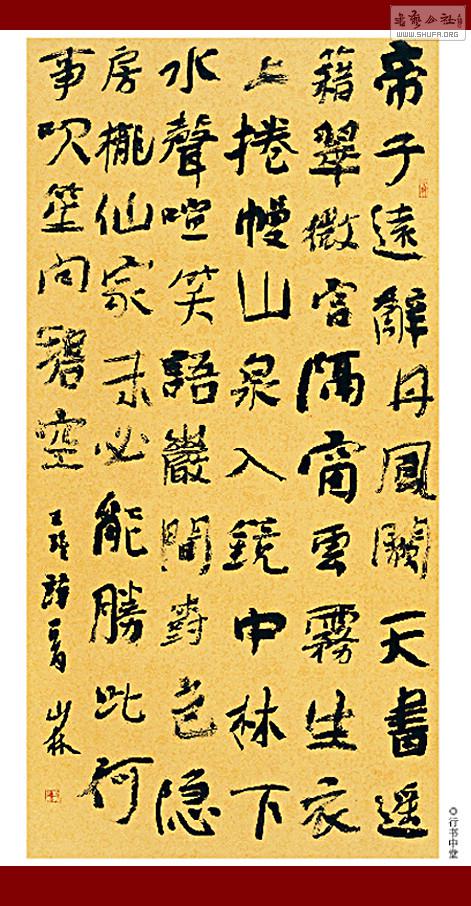 帝子遠辭丹鳳闕天書遥
籍翠微宫隔窗雲霧生衣
上捲幔山泉入鏡中林下
水聲喧笑語巖間樹色隐
房櫳仙家未必能勝此何
事吹笙向碧空
王維詩一首 山林
◎行书中堂
书艺公社
WWW.SHUFA.ORG